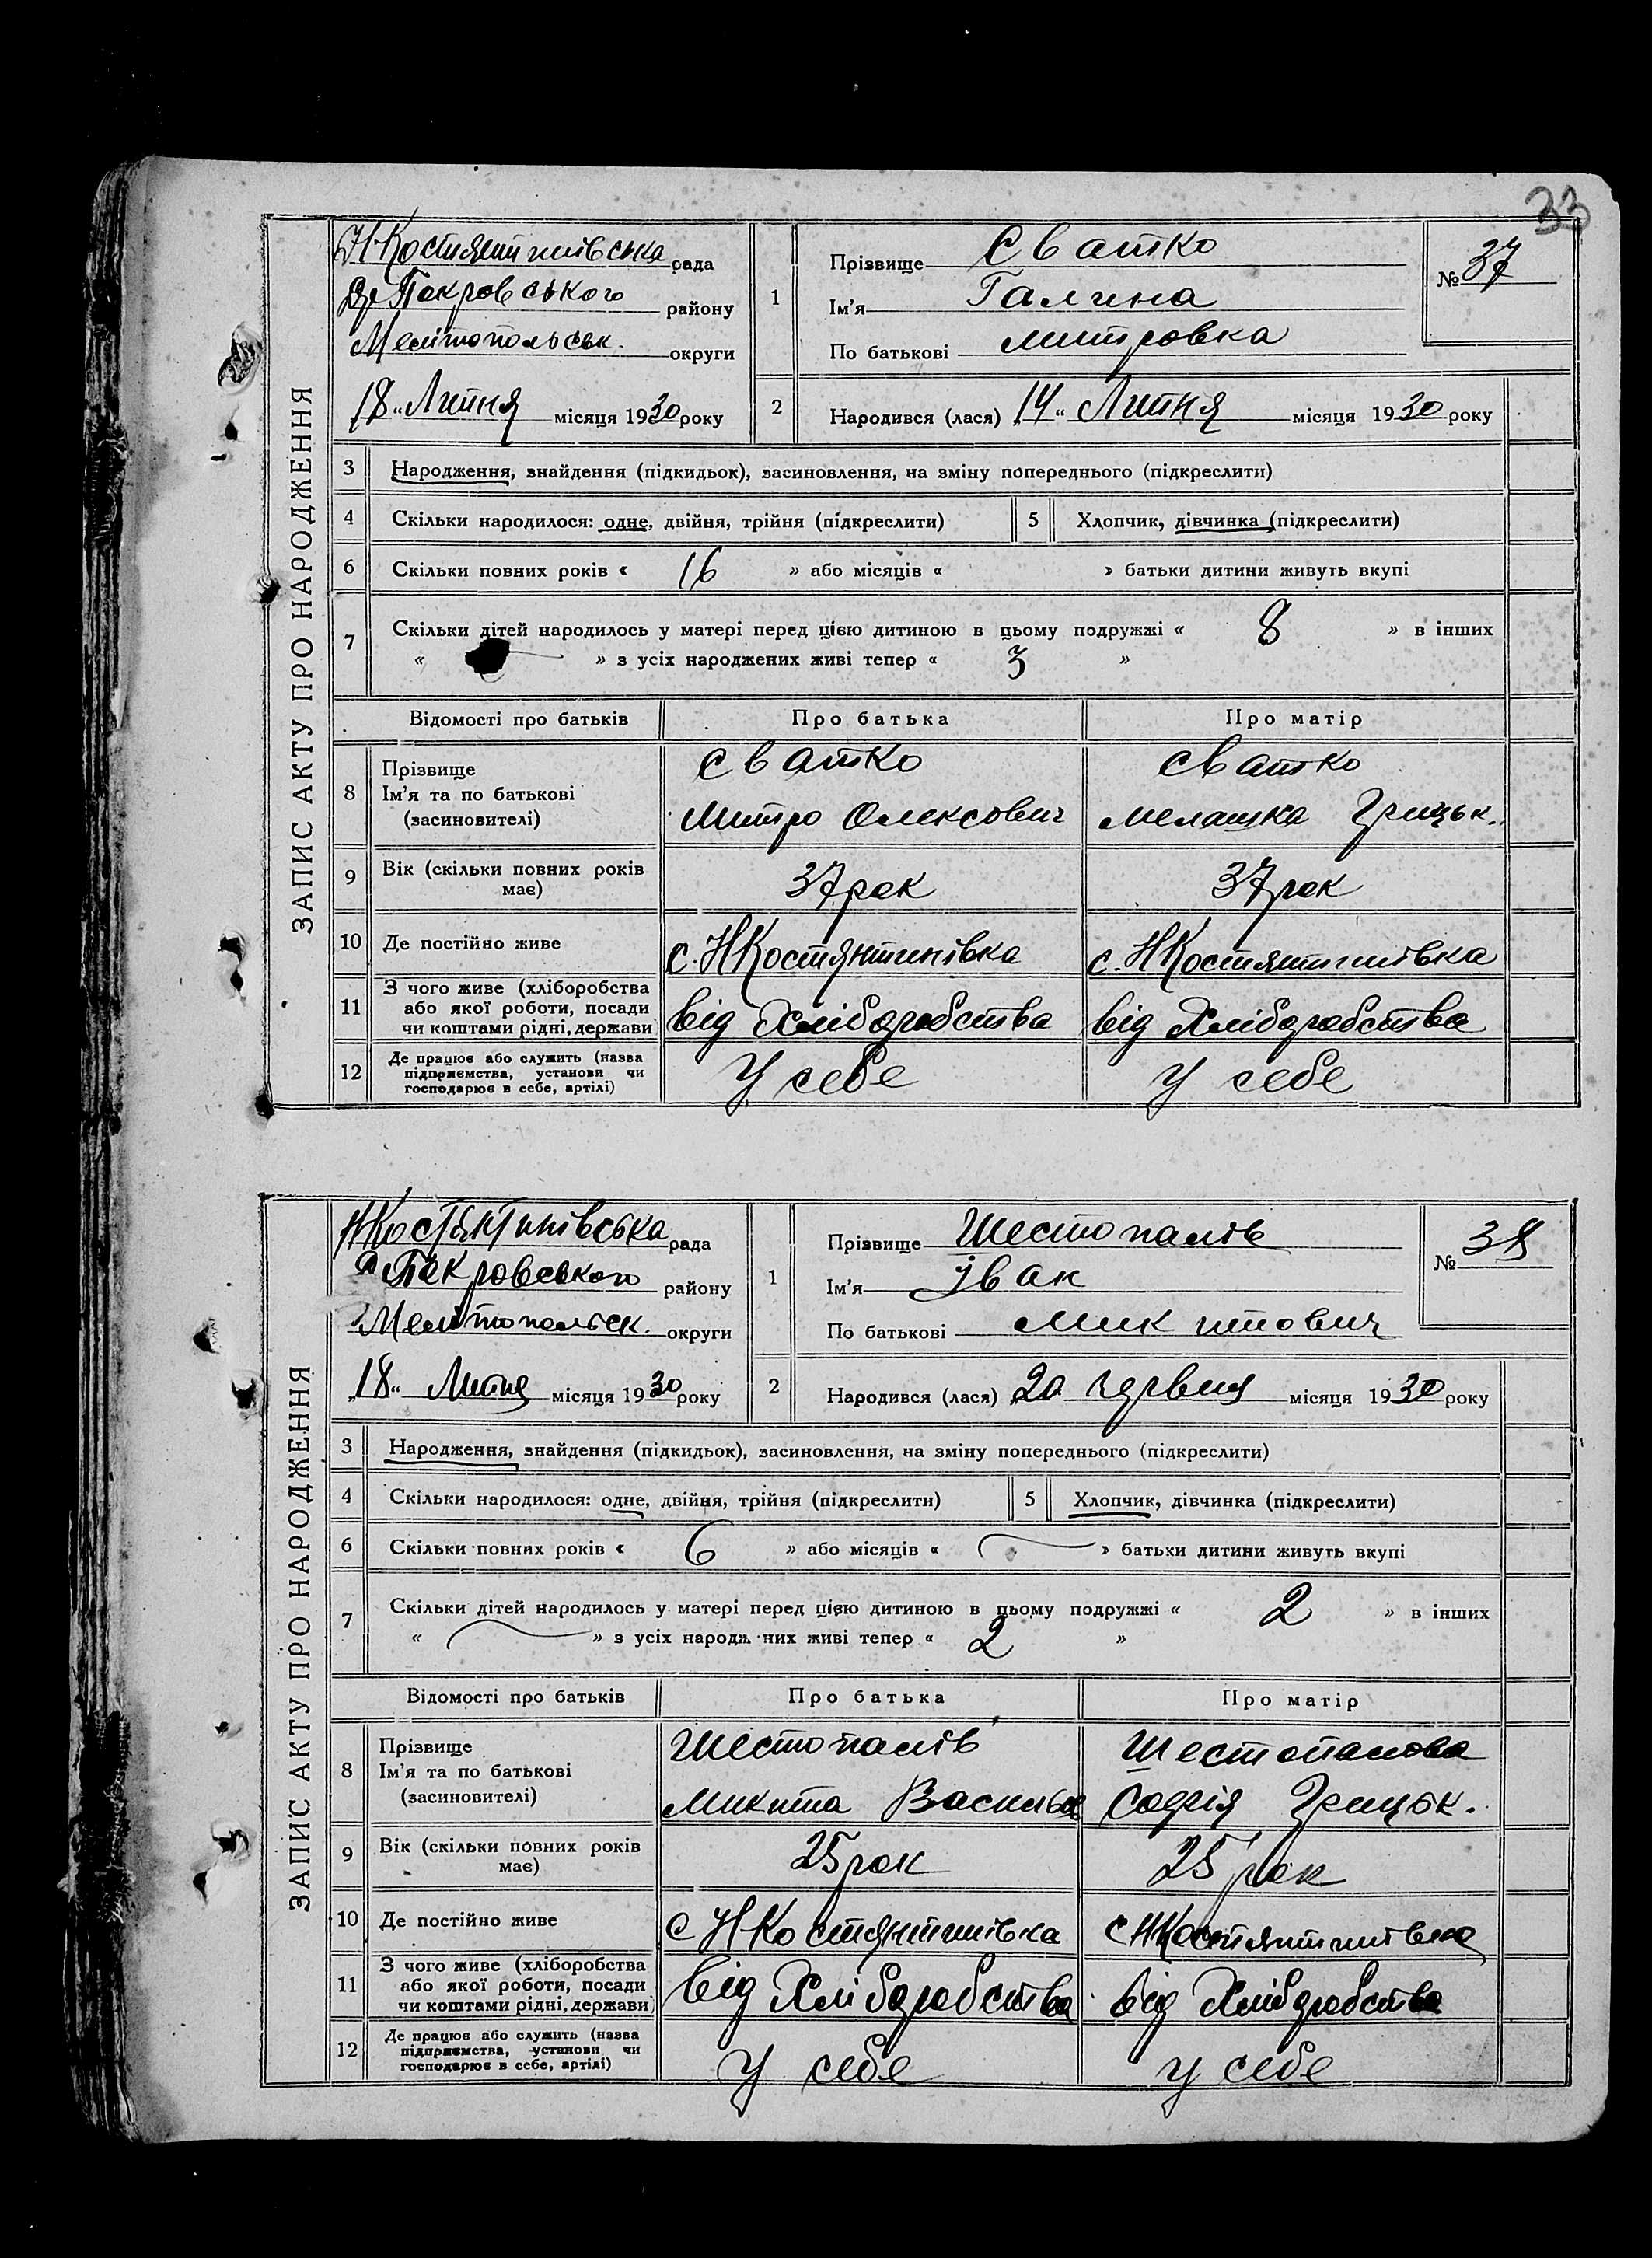 33
ЗАПИС АКТУ ПРО НАРОДЖЕННЯ
НКостянтинівська рада
Покровського району
Мелітопольськ. округи
18 " Липня місяця 1930 року
1 Прізвище Сватко
Ім'я Галина
По батькові Митровка
№ 37
2 Народився (лася) „14 " Липня місяця 1930 року
3 Народження, знайдення (підкидьок), засиновлення, на зміну попереднього (підкреслити)
4 Скільки народилося: одне, двійня, трійня (підкреслити) 5 Хлопчик, дівчинка (підкреслити)
6 Скільки повних років « 16 » або місяців « » батьки дитини живуть вкупі
7 Скільки дітей народилось у матері перед цією дитиною в цьому подружжі « 8 » в інших
« » з усіх народжених живі тепер « 3 »
Відомості про батьків Про батька Про матір
8 Прізвище Ім'я та по батькові (засиновителі)
Сватко Сватко
Митро Олексович Мелашка Грицьк.
9 Вік (скільки повних років має) 37 рок 37 рок
10 Де постійно живе с. НКостянтинівка с. НКостянтинівка
11 З чого живе (хліборобства або якої роботи, посади чи коштами рідні, держави) від Хліборобства від Хліборобства
12 Де працює або служить (назва підприємства, установи чи господарює в себе, артілі) У себе У себе
ЗАПИС АКТУ ПРО НАРОДЖЕННЯ
НКостянтинівська рада
Покровського району
Мелітопольск. округи
„18 " Липня місяця 1930 року
1 Прізвище Шестопалів
Ім'я Іван
По батькові Микитович
№ 38
2 Народився (лася) „20 червня місяця 1930 року
3 Народження, знайдення (підкидьок), засиновлення, на зміну попереднього (підкреслити)
4 Скільки народилося: одне, двійня, трійня (підкреслити) 5 Хлопчик, дівчинка (підкреслити)
6 Скільки повних років « 6 » або місяців « » батьки дитини живуть вкупі
7 Скільки дітей народилось у матері перед цією дитиною в цьому подружжі « 2 » в інших
« » з усіх народж них живі тепер « 2 »
Відомості про батьків Про батька Про матір
8 Прізвище Ім'я та по батькові (засиновителі)
Шестопалів Шестопалова
Микита Васильов Софія Грицьк.
9 Вік (скільки повних років має) 25 рок 25 рок
10 Де постійно живе с НКостянтинівка с НКостянтинівка
11 З чого живе (хліборобства або якої роботи, посади чи коштами рідні, держави) від Хліборобства від Хліборобства
12 Де працює або служить (назва підприємства, установи чи господарює в себе, артілі) У себе у себе